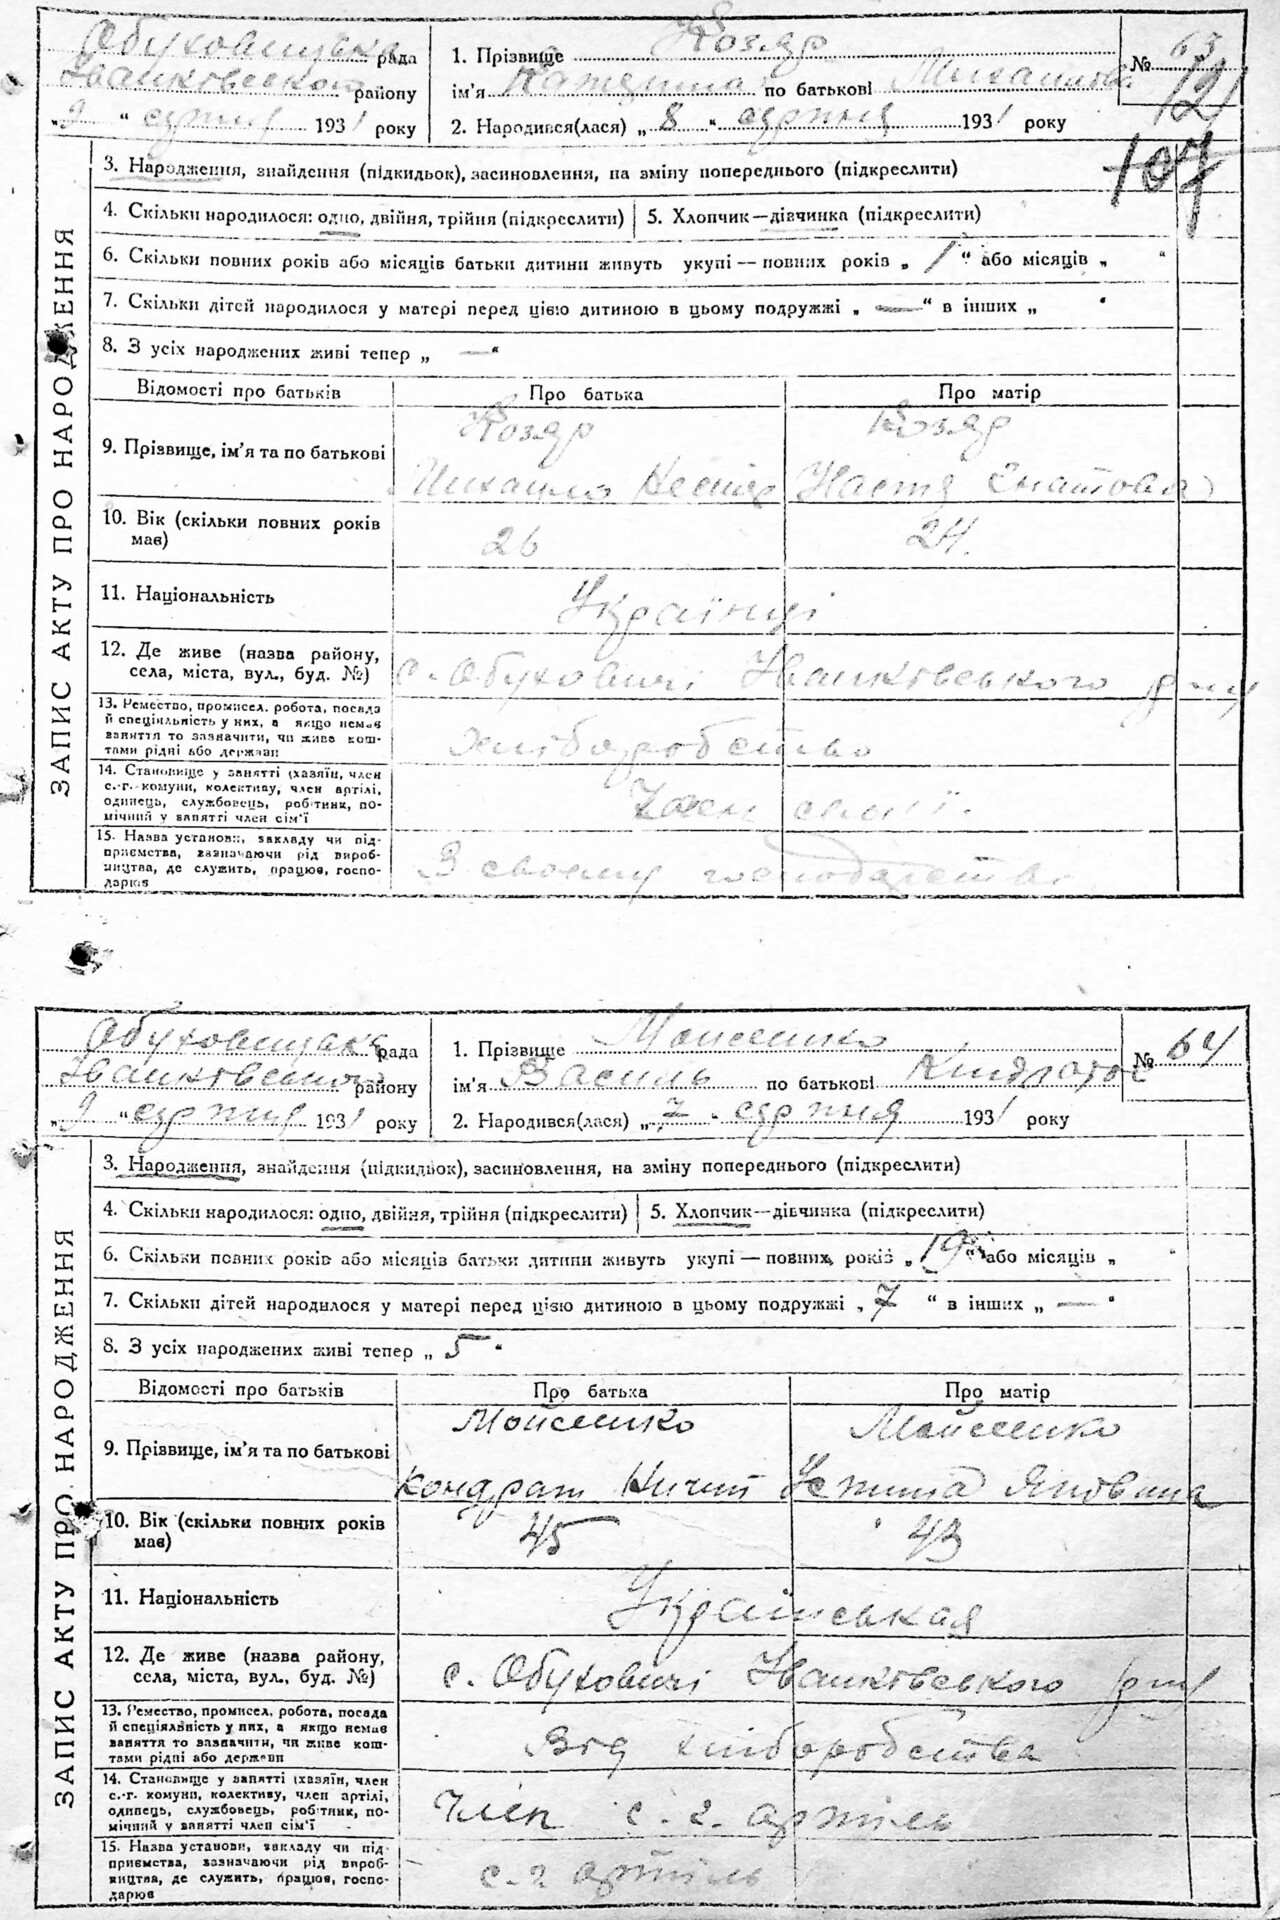 Обуховицька рада
Іванківського району
„ 9 “ серпня 1931 року
1. Прізвище Козяр
ім'я Катерина по батькові Михайлівна
2. Народився(лася) „ 8 “ серпня 1931 року
№ 63
121
107
ЗАПИС АКТУ ПРО НАРОДЖЕННЯ
3. Народження, знайдення (підкидьок), засиновлення, на зміну попереднього (підкреслити)
4. Скільки народилося: одно, двійня, трійня (підкреслити) 5. Хлопчик—дівчинка (підкреслити)
6. Скільки повних років або місяців батьки дитини живуть укупі — повних років „ 1 “ або місяців „ “
7. Скільки дітей народилося у матері перед цією дитиною в цьому подружжі „ — “ в інших „ “
8. З усіх народжених живі тепер „ — “
Відомості про батьків Про батька Про матір
9. Прізвище, ім'я та по батькові
Козяр Козяр
Михайло Нестір Настя
10. Вік (скільки повних років має) 26 24.
11. Національність Українці
12. Де живе (назва району, села, міста, вул., буд. №) с. Обуховичі Іванківського р-ну
13. Ремество, промисел, робота, посада й спеціяльність у них, а якщо немає заняття то зазначити, чи живе коштами рідні або держави
хліборобство
14. Становище у занятті (хазяїн, член с.-г. комуни, колективу, член артілі, одинець, службовець, робітник, помічний у занятті член сім'ї
Член сем'ї.
15. Назва установи, закладу чи підприємства, зазначаючи рід виробництва, де служить, працює, господарює
В своєму господарстві
Обуховицька рада
Іванківського району
„ 9 “ серпня 1931 року
1. Прізвище Мойсеєнко
ім'я Василь по батькові Киндратов
2. Народився(лася) „ 7 “ серпня 1931 року
№ 64
ЗАПИС АКТУ ПРО НАРОДЖЕННЯ
3. Народження, знайдення (підкидьок), засиновлення, на зміну попереднього (підкреслити)
4. Скільки народилося: одно, двійня, трійня (підкреслити) 5. Хлопчик—дівчинка (підкреслити)
6. Скільки повних років або місяців батьки дитини живуть укупі — повних років „ 19 “ або місяців „ “
7. Скільки дітей народилося у матері перед цією дитиною в цьому подружжі „ 7 “ в інших „ — “
8. З усіх народжених живі тепер „ 5 “
Відомості про батьків Про батька Про матір
9. Прізвище, ім'я та по батькові
Мойсеєнко Мойсеєнко
Кондрат Ничип Устина
10. Вік (скільки повних років має) 45 43
11. Національність Українськая
12. Де живе (назва району, села, міста, вул., буд. №) с. Обуховичі Іванківського р-ну
13. Ремество, промисел, робота, посада й спеціяльність у них, а якщо немає заняття то зазначити, чи живе коштами рідні або держави
Від хліборобства
14. Становище у занятті (хазяїн, член с.-г. комуни, колективу, член артілі, одинець, службовець, робітник, помічний у занятті член сім'ї
Член с. г. артіль
15. Назва установи, закладу чи підприємства, зазначаючи рід виробництва, де служить, працює, господарює
с. г артіль